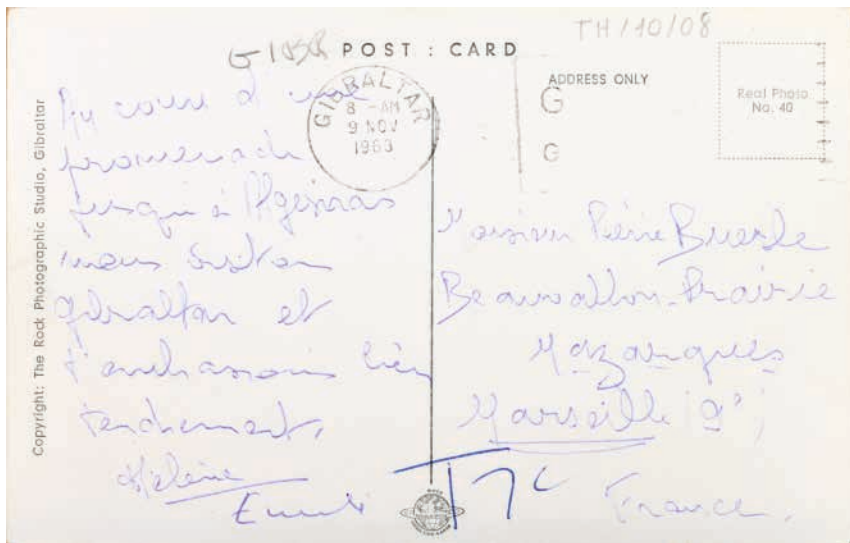 TH/10/08
POST : CARD
ADDRESS ONLY
Real Photo
No. 40
G
G
GIBRALTAR
8 - AM
9 NOV
1963
Copyright: The Rock Photographic Studio, Gibraltar
Au cours d'une
promenade
jusqu'à Algésiras
nous visitons
gibraltar et
t'embrassons bien
tendrement,
Hélène
Monsieur Pierre
Beauvallon-Prairie
Mazargues
Marseille 9e
France.